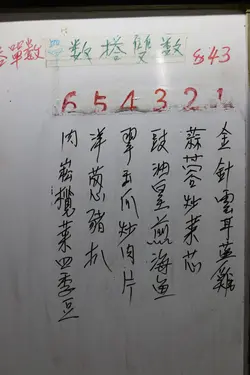 單數
單數搭雙數
843
6 5 4 3 2 1
金針雲耳蒸雞
蒜蓉炒菜芯
豉油皇煎海魚
翠玉瓜炒肉片
洋蔥豬扒
肉崧欖菜四季豆